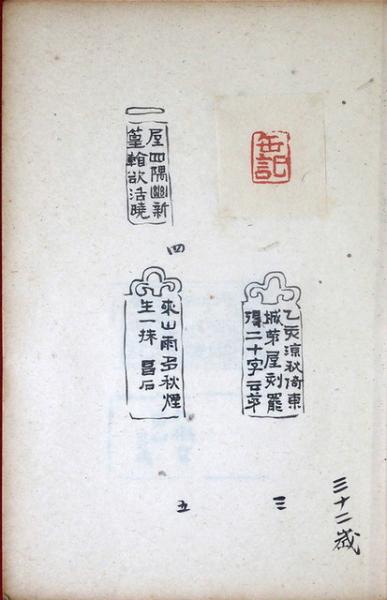 缶記
乙亥涼秋倚東
城茅屋刻罷
得二十字云茅
三
三十二歲
屋四隅幽新
篁欲活曉
四
來山雨多秋煙
生一抹 昌石
五